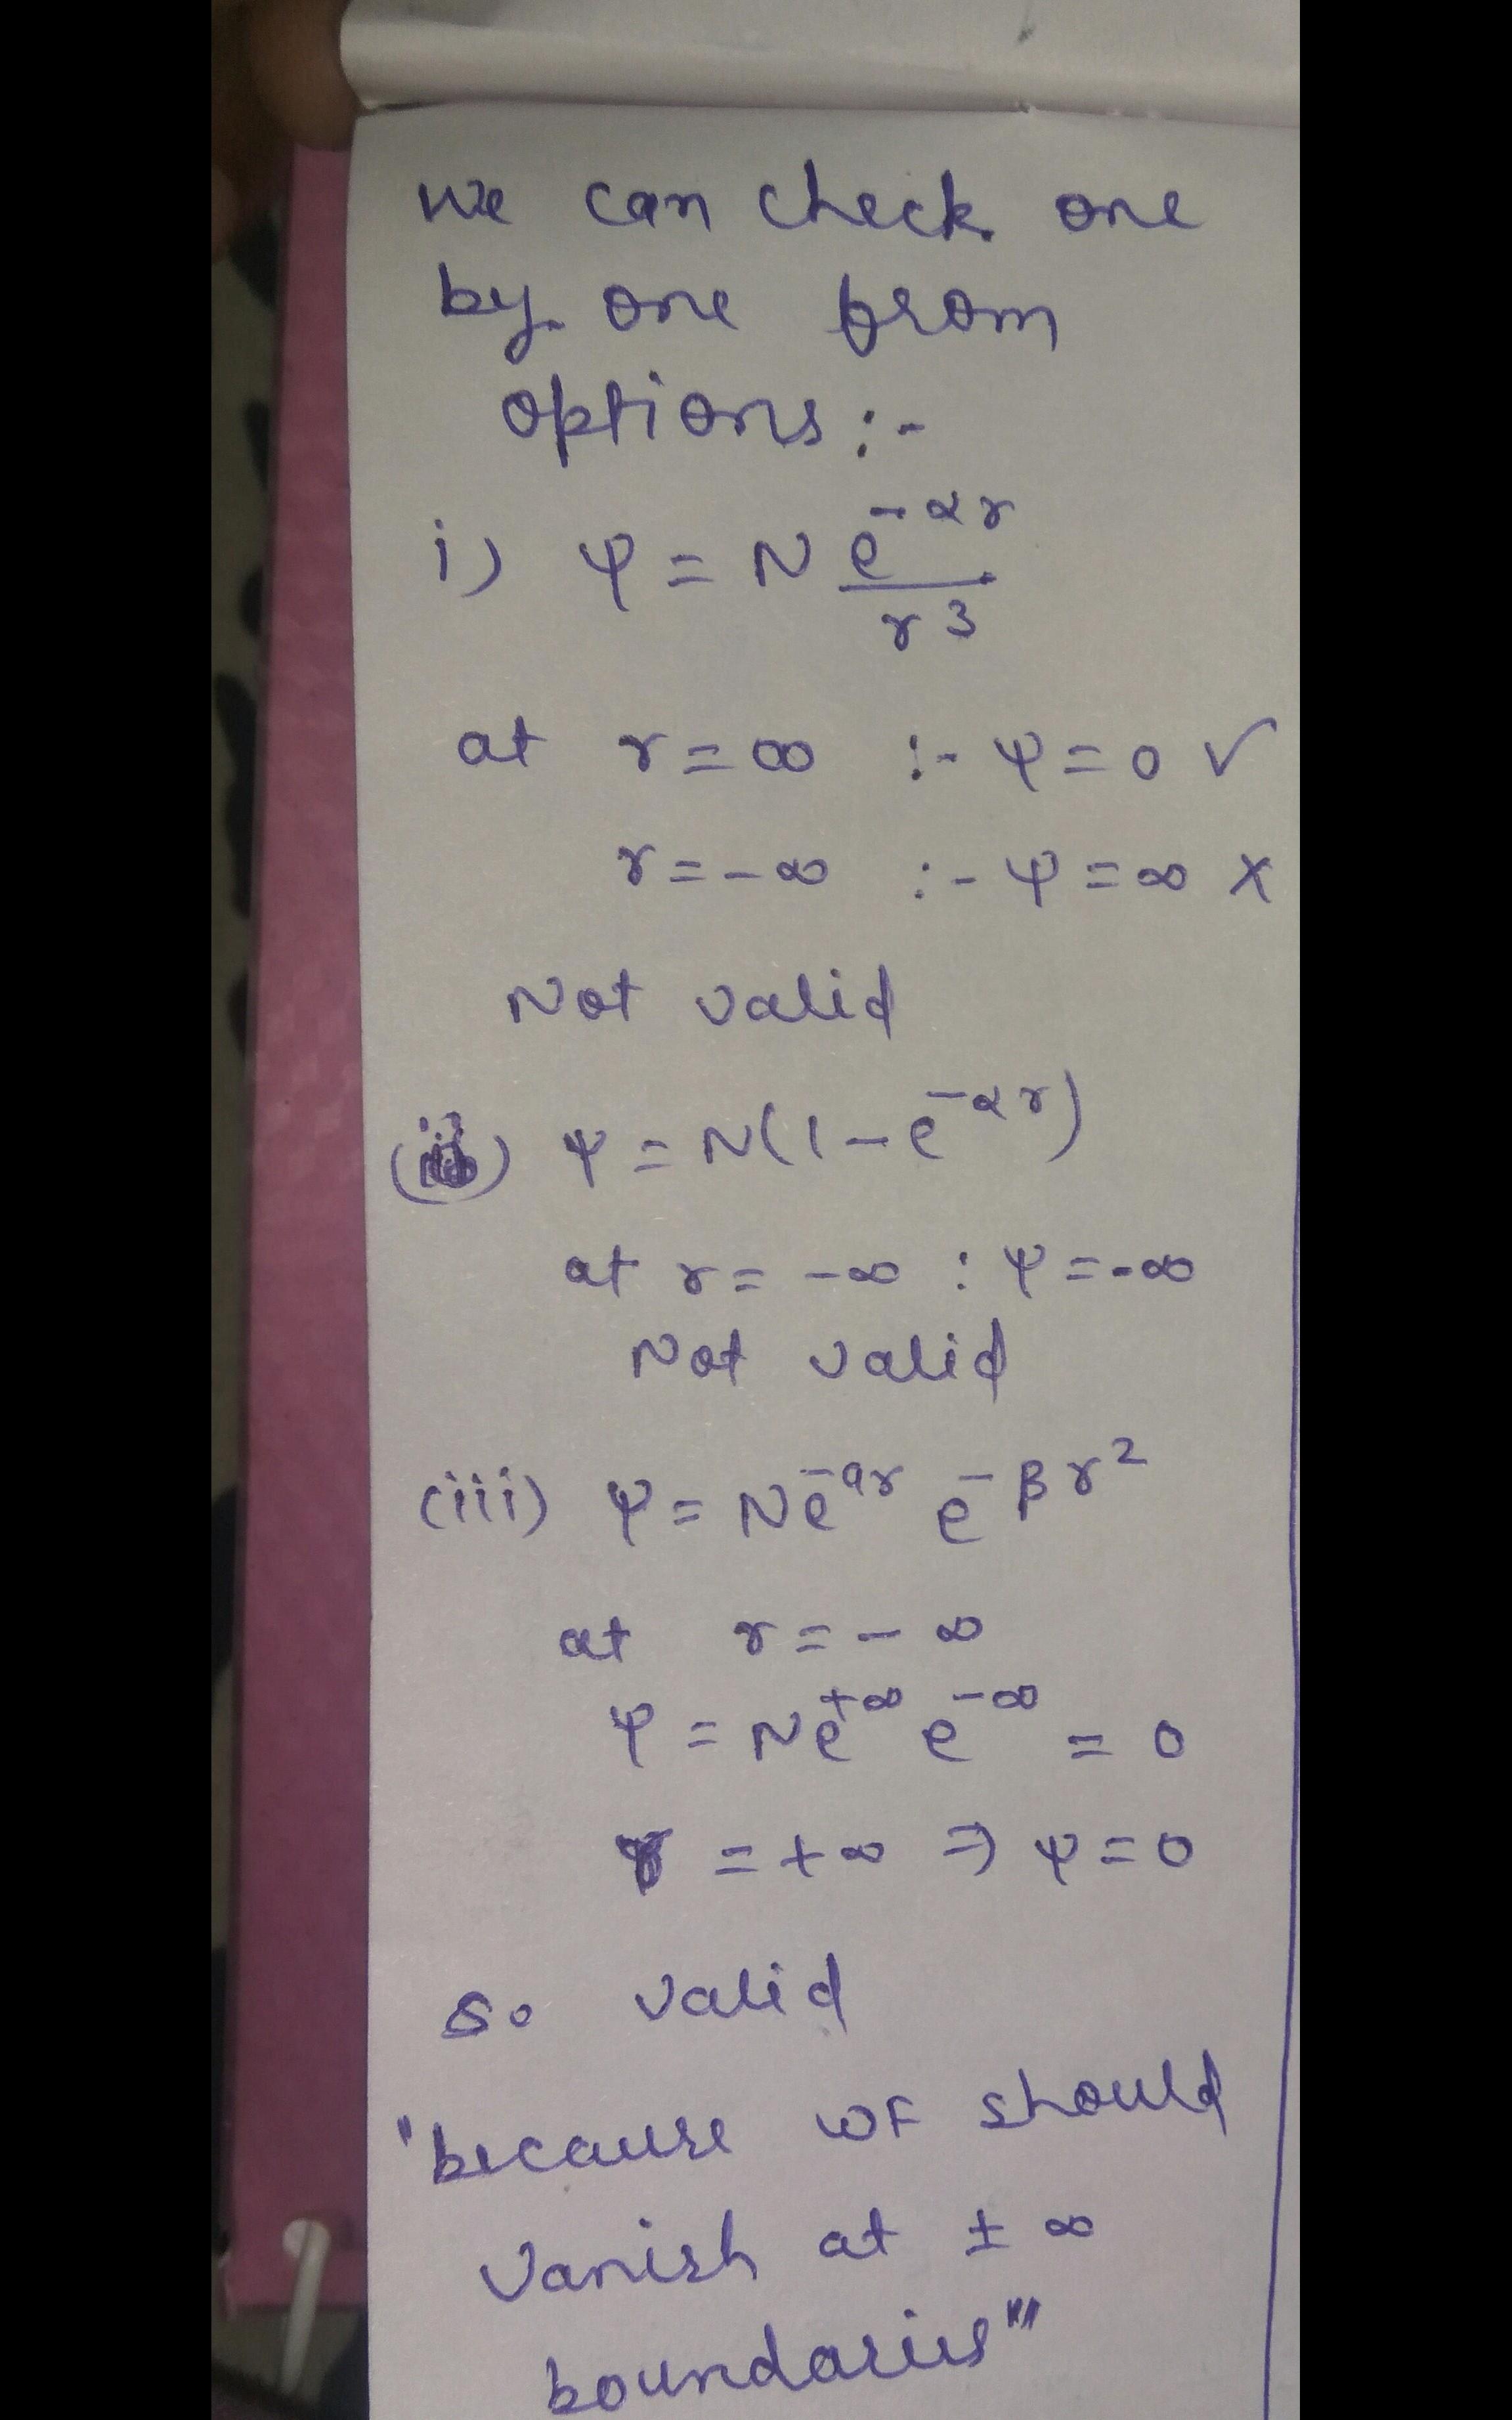 we can check one
by one from
options :-
i) ψ = N e^-αr / r^3
at r = ∞ :- ψ = 0 ✓
r = -∞ :- ψ = ∞ ×
Not valid
(ii) ψ = N(1 - e^-αr)
at r = -∞ : ψ = -∞
Not valid
(iii) ψ = N e^-ar e^-βr^2
at r = -∞
ψ = N e^+∞ e^-∞ = 0
r = +∞ ⇒ ψ = 0
So valid
"because WF should
vanish at ± ∞
boundaries"